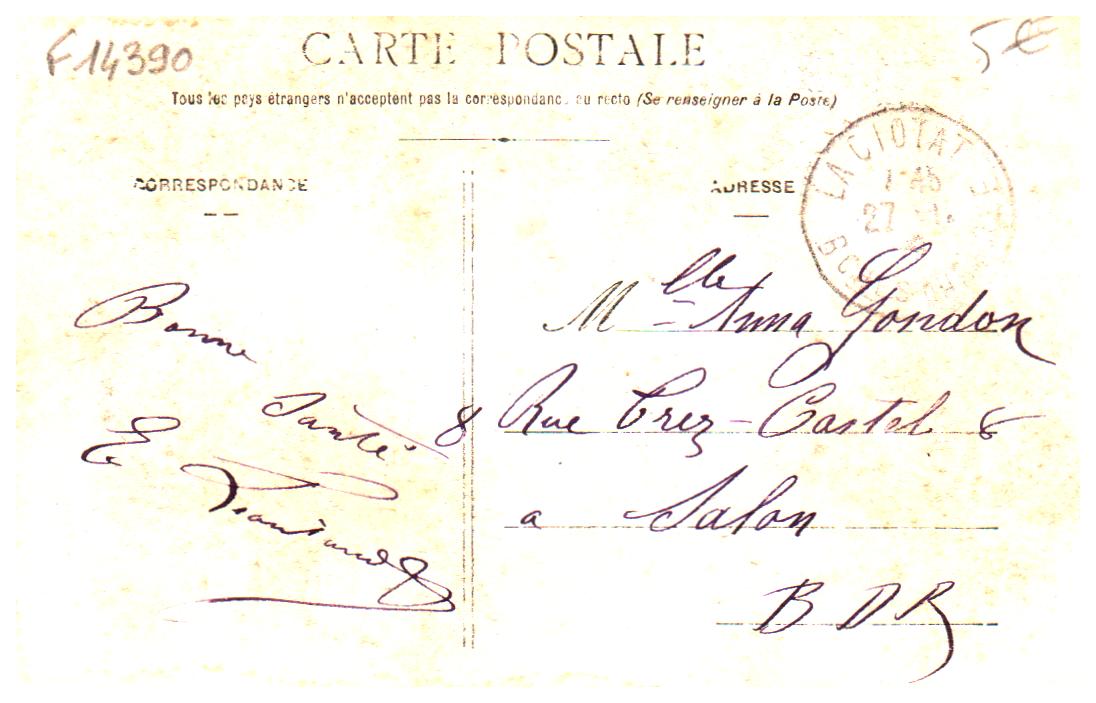 F14390
5€
CARTE POSTALE
Tous les pays étrangers n'acceptent pas la correspondance au recto (Se renseigner à la Poste)
CORRESPONDANCE
Bonne
Santé
E
ADRESSE
LA CIOTAT
27
Mlle Anna Gondon
8 Rue Trez-Castel 8
a Salon
B D R